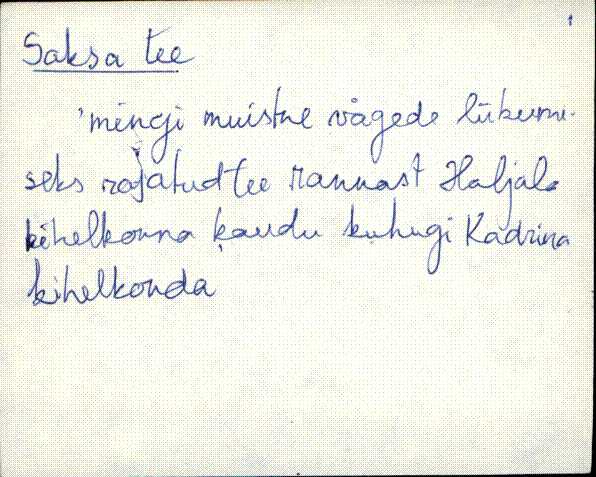 1
Saksa tee
'mingi muistne vägede liikumi-
seks rajatud tee rannast Haljala
kihelkonna kaudu kuhugi Kadrina
kihelkonda